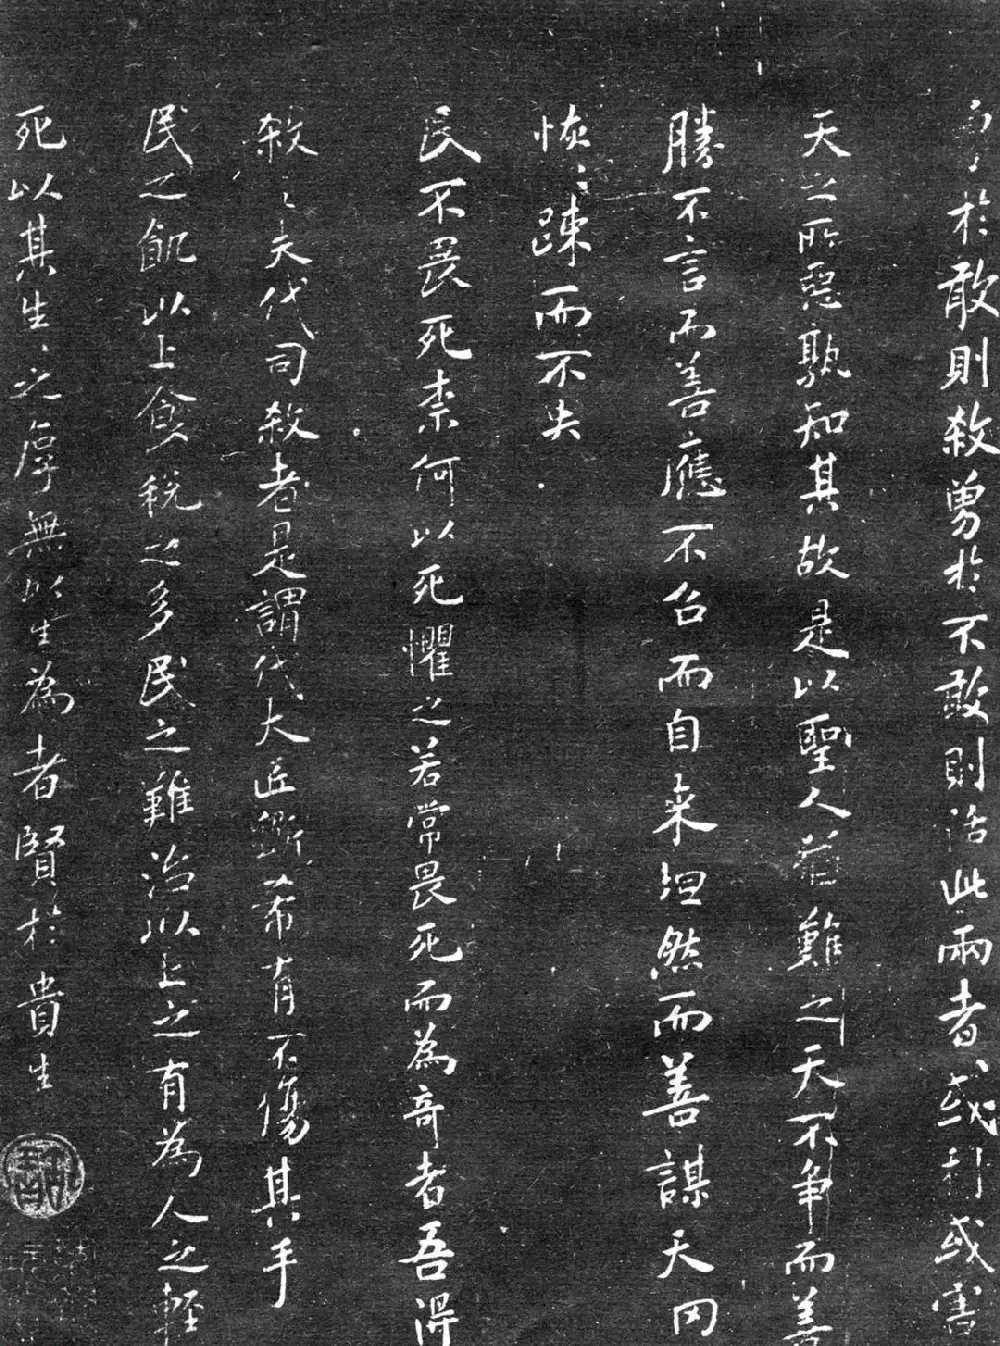 勇於敢則殺勇於不敢則活此兩者或利或害
天之所惡孰知其故是以聖人猶難之天不争而善
勝不言而善應不召而自来坦然而善謀天网
恢〻踈而不失
民不畏死柰何以死懼之若常畏死而為奇者吾得
殺〻夫代司殺者是謂代大匠斲希有不傷其手
民之飢以上食税之多民之難治以上之有為人之輕
死以其生〻之厚無以生為者賢於貴生